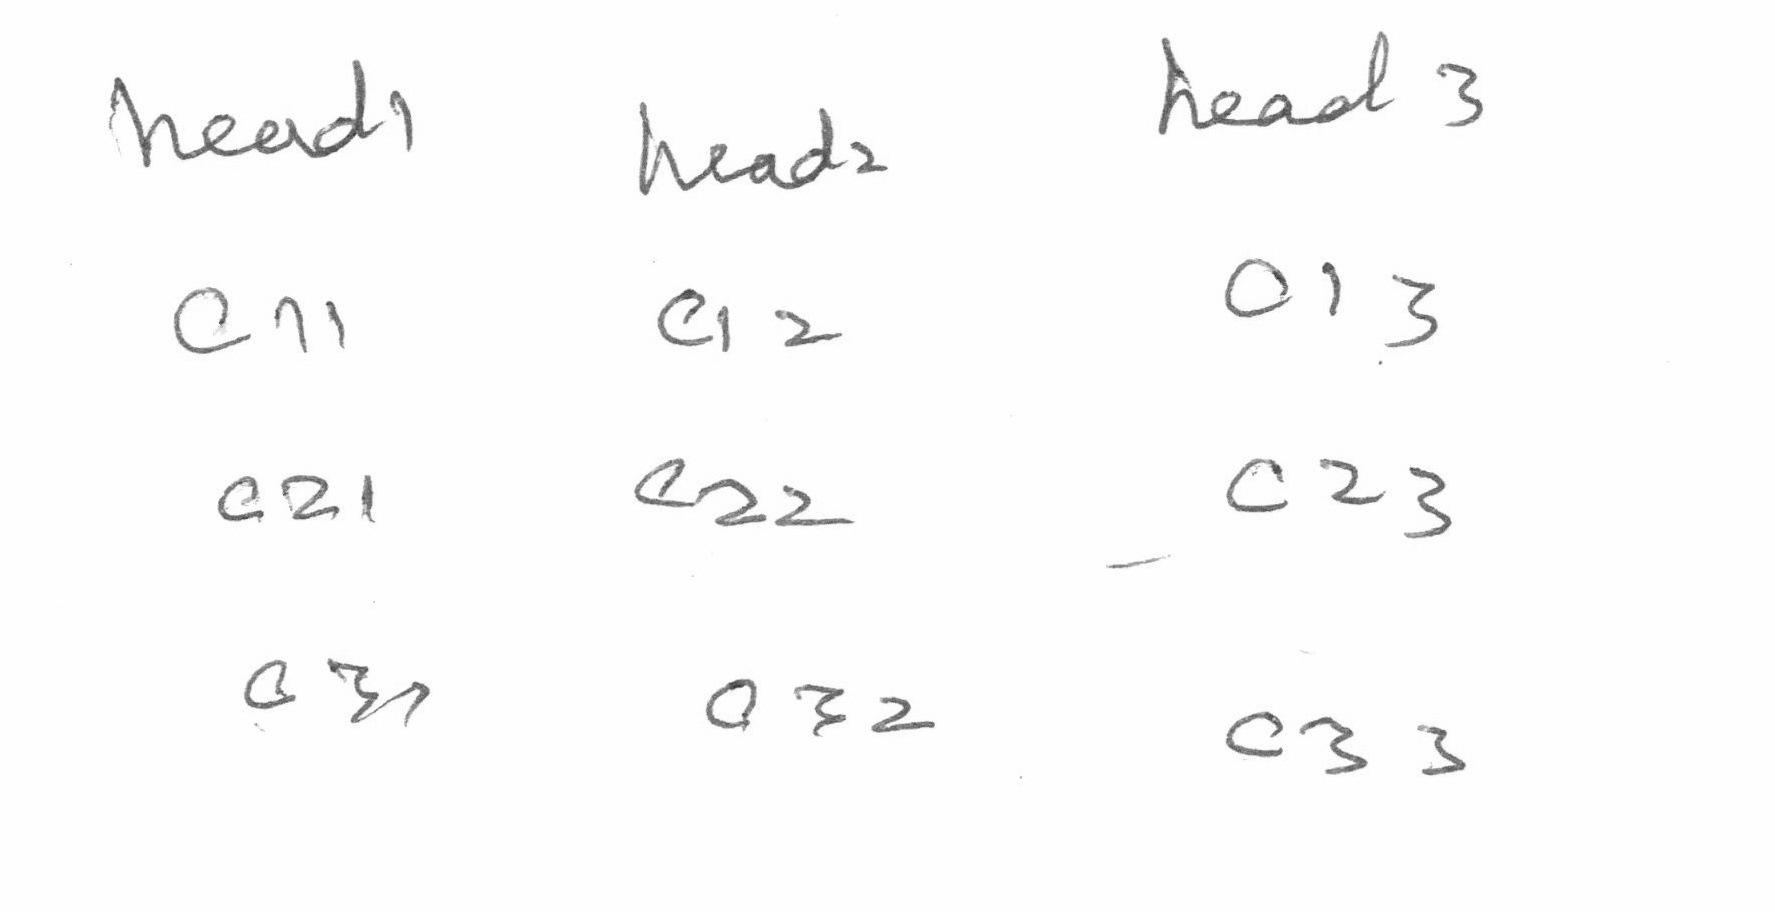 head1 head2 head 3
C11 C12 C13
C21 C22 C23
C31 C32 C33